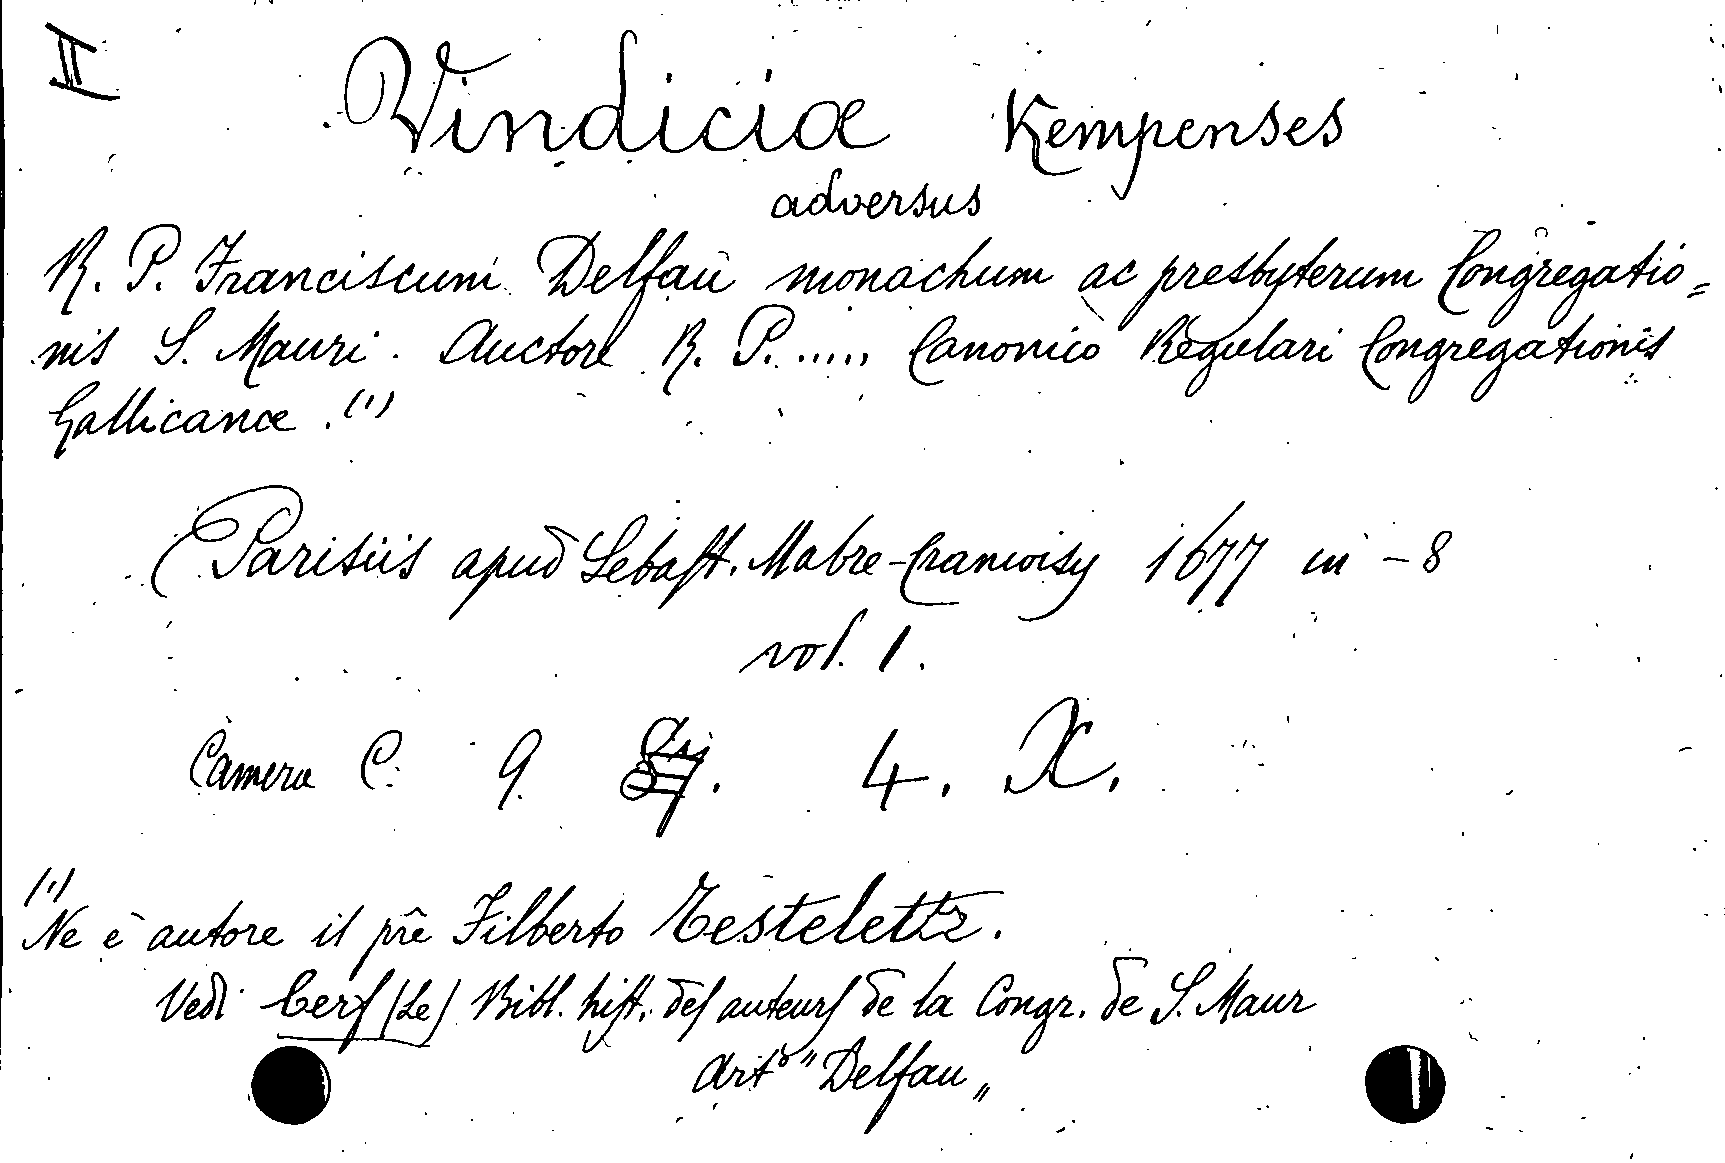 II
Vindiciæ Kempenses
adversus
R. P. Franciscum Delfau monachum ac presbyterum Congregatio=
nis S. Mauri. Auctore R. P..... Canonico Regulari Congregationis
Gallicanæ. (1)
Parisiis apud Sebast. Mabre-Cramoisy 1677 in -8
vol. 1.
Camera C. 9. 4. X.
(1)
Ne è autore il prê Filberto Testelette.
Vedi Cerf (Le) Bibl. hist. des auteurs de la Congr. de S. Maur
Art° "Delfau„